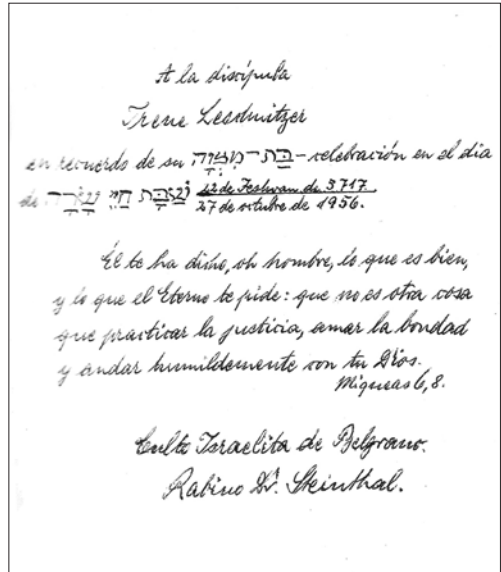 A la discípula
Irene Leschnitzer
en recuerdo de su בַּת־מִצְוָה-celebración en el día
de שַׁבָּת חַיֵּי שָׂרָה 22 de Jeshvan de 5717
27 de octubre de 1956.
Él te ha dicho, oh hombre, lo que es bien,
y lo que el Eterno te pide: que no es otra cosa
que practicar la justicia, amar la bondad
y andar humildemente con tu Dios.
Miqueas 6, 8.
Culto Israelita de Belgrano.
Rabino Dr. Steinthal.